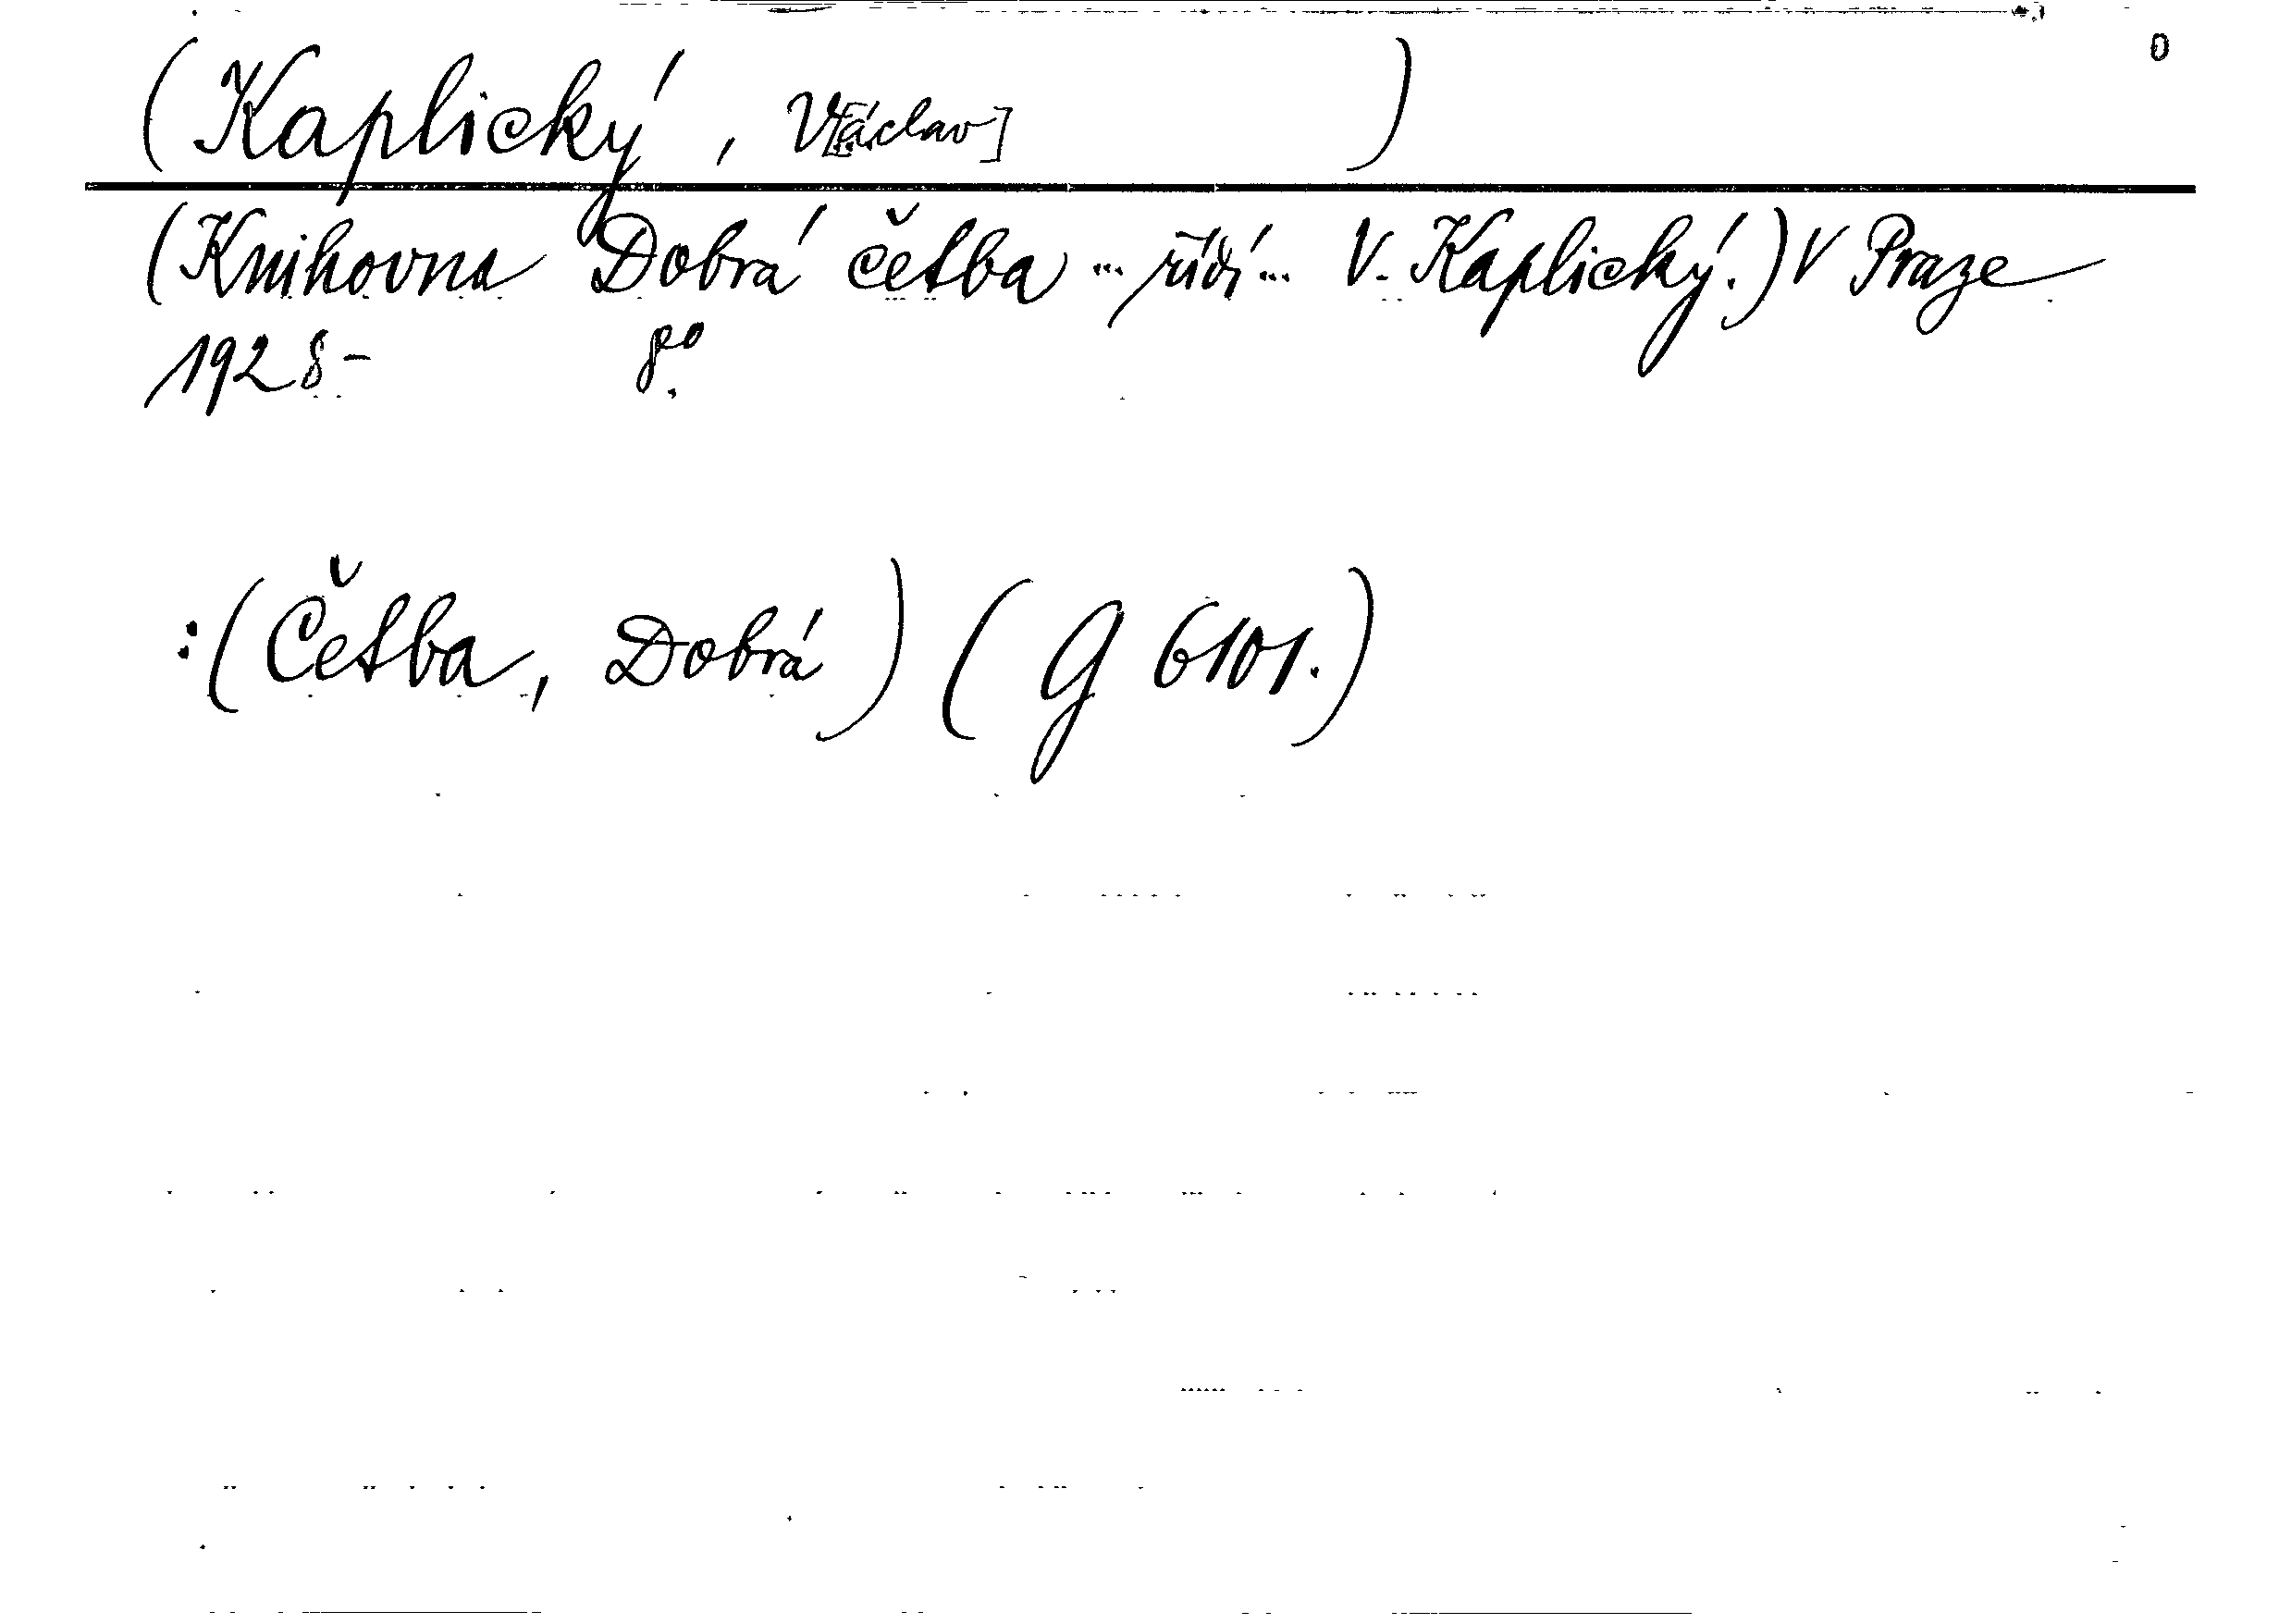 0
(Kaplický, V[áclav] )
(Knihovna Dobrá četba ... řídí ... V. Kaplický.) V Praze
1928- 8°.
:(Četba, Dobrá) (G 6101.)